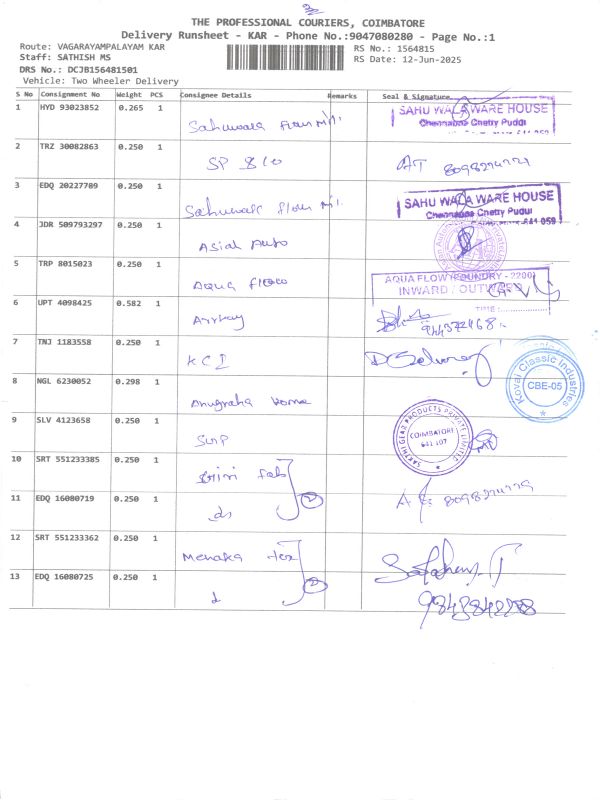 THE PROFESSIONAL COURIERS, COIMBATORE
Delivery Runsheet - KAR - Phone No.:9047080280 - Page No.:1
Route: VAGARAYAMPALAYAM KAR
RS No.: 1564815
Staff: SATHISH MS
RS Date: 12-Jun-2025
DRS No.: DCJB156481501
Vehicle: Two Wheeler Delivery
S No Consignment No Weight PCS Consignee Details Remarks Seal & Signature
1 HYD 93023852 0.265 1 Sahuwala Flour Mil. SAHU WALA WARE HOUSE
Chennappa Chetty Pudur
2 TRZ 30082863 0.250 1 SP & Co
3 EDQ 20227789 0.250 1 Sahuwala flour Mil. SAHU WALA WARE HOUSE
Chennappa Chetty Pudur
641 059
4 JDR 509793297 0.250 1 Asial Auto
5 TRP 8015023 0.250 1 Aqua Flow AQUA FLOW FOUNDRY - 2200
INWARD / OUTWARD
TIME:
6 UPT 4098425 0.582 1
7 TNJ 1183558 0.250 1 KCI
Kovai Classic Industries
CBE-05
8 NGL 6230052 0.298 1 Anugraha Home
9 SLV 4123658 0.250 1
SAKTHI GEAR PRODUCTS PRIVATE LIMITED
COIMBATORE
641 107
10 SRT 551233385 0.250 1
11 EDQ 16080719 0.250 1
2
12 SRT 551233362 0.250 1 Menaka Tex
13 EDQ 16080725 0.250 1
2